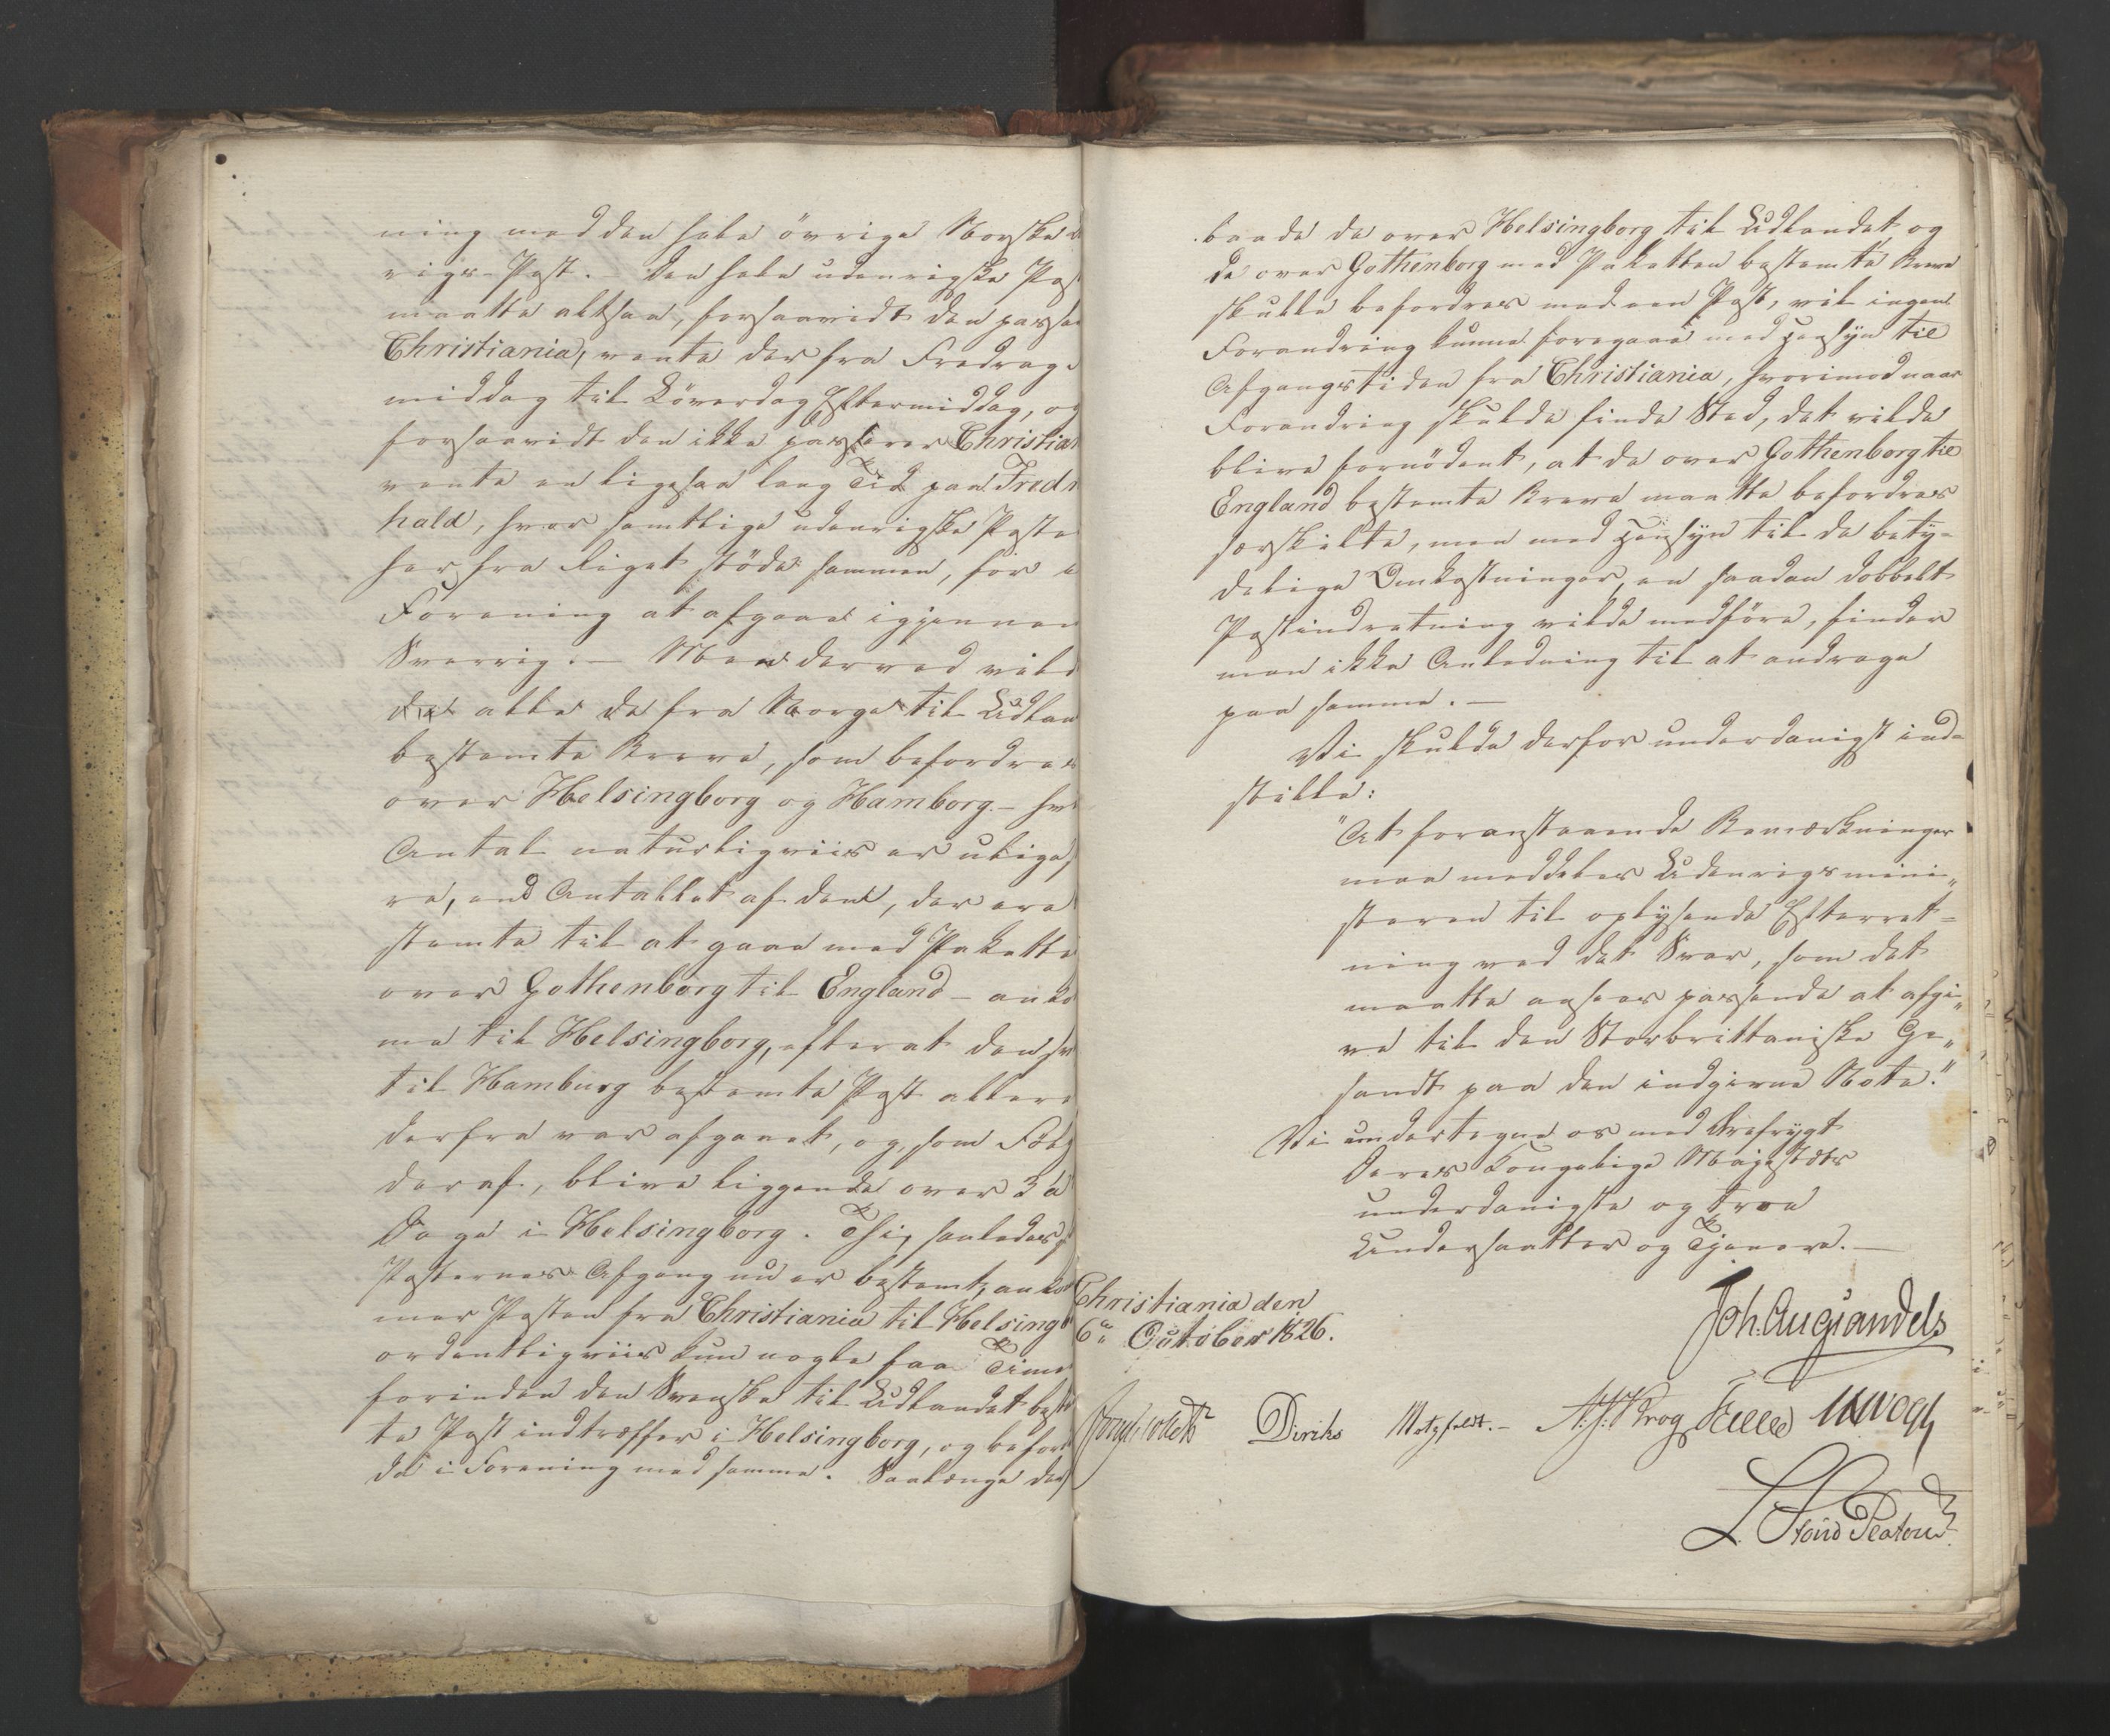 ning med den hele övrige Norske
rigs-Post. – Den hele udenrigske Pos
maatte altsaa, forsaavidt den passe
Christiania, vente der fra Fredag
middag til Löverdag Eftermiddag, og
forsaavidt den ikke passerer Christian
vente en ligesaa lang Tid paa Fredr
hald, hvor samtlige udenrigske Poste
her fra Riget støde sammen, for i
Forening at afgaae igjennem
Sverrig. – Men derved vild
alle de fra Norge til Udlan
bestemte Breve, som befordres
over Helsingborg og Hamborg – hvi
Antal naturligviis er ulige
re, end Antallet af dem, der ere
stemte til at gaae med Pakette
over Gothenborg til England – anko
me til Helsingborg, efterat den
til Hamburg bestemte Post allere
derfra var afgaaet, og, som Følg
deraf, blive liggende over 3 a
Dage i Helsingborg. Thi, saaledes
Posternes Afgang nu er bestemt, anko
mer Posten fra Christiania til Helsingb
ordentligviis kun nogle faa Time
forinden den Svenske til Udlandet best
te Post indtræffer i Helsingborg, og befor
de i Forening med samme. Saalænge der
baade de over Helsingborg til Udlandet og
de over Gothenborg med Paketten bestemte Breve
skulle befordres med een Post, vil ingen
Forandring kunne foregaae med Hensyn til
Afgangstiden fra Christiania, hvorimod naar
Forandring skulde finde Sted, det vilde
blive fornödent, at de over Gothenborg til
England bestemte Breve maatte befordres
særskilte, men med Hensyn til de bety-
delige Omkostninger, en saadan dobbelt
Postindretning vilde medføre, finder
man ikke Anledning til at andrage
paa samme. –
Vi skulde derfor underdanigst ind-
stille:
"At foranstaaende Bemærkninger
maa meddeles Udenrigsmini-
steren til oplysende Efterret-
ning ved det Svar, som det
maatte ansees passende at afgi-
ve til den Storbrittaniske Ge-
sandt paa den indgivne Note."
Vi undertegne os med Ærefrygt
Deres Kongelige Majestæts
underdanigste og troe
Undersaatter og Tjenere. –
Christiania den
6te October 1826.
Joh. Aug Sandels
Diriks Motzfeldt. – A.P. Krog Fasting
L. Stoud Platou